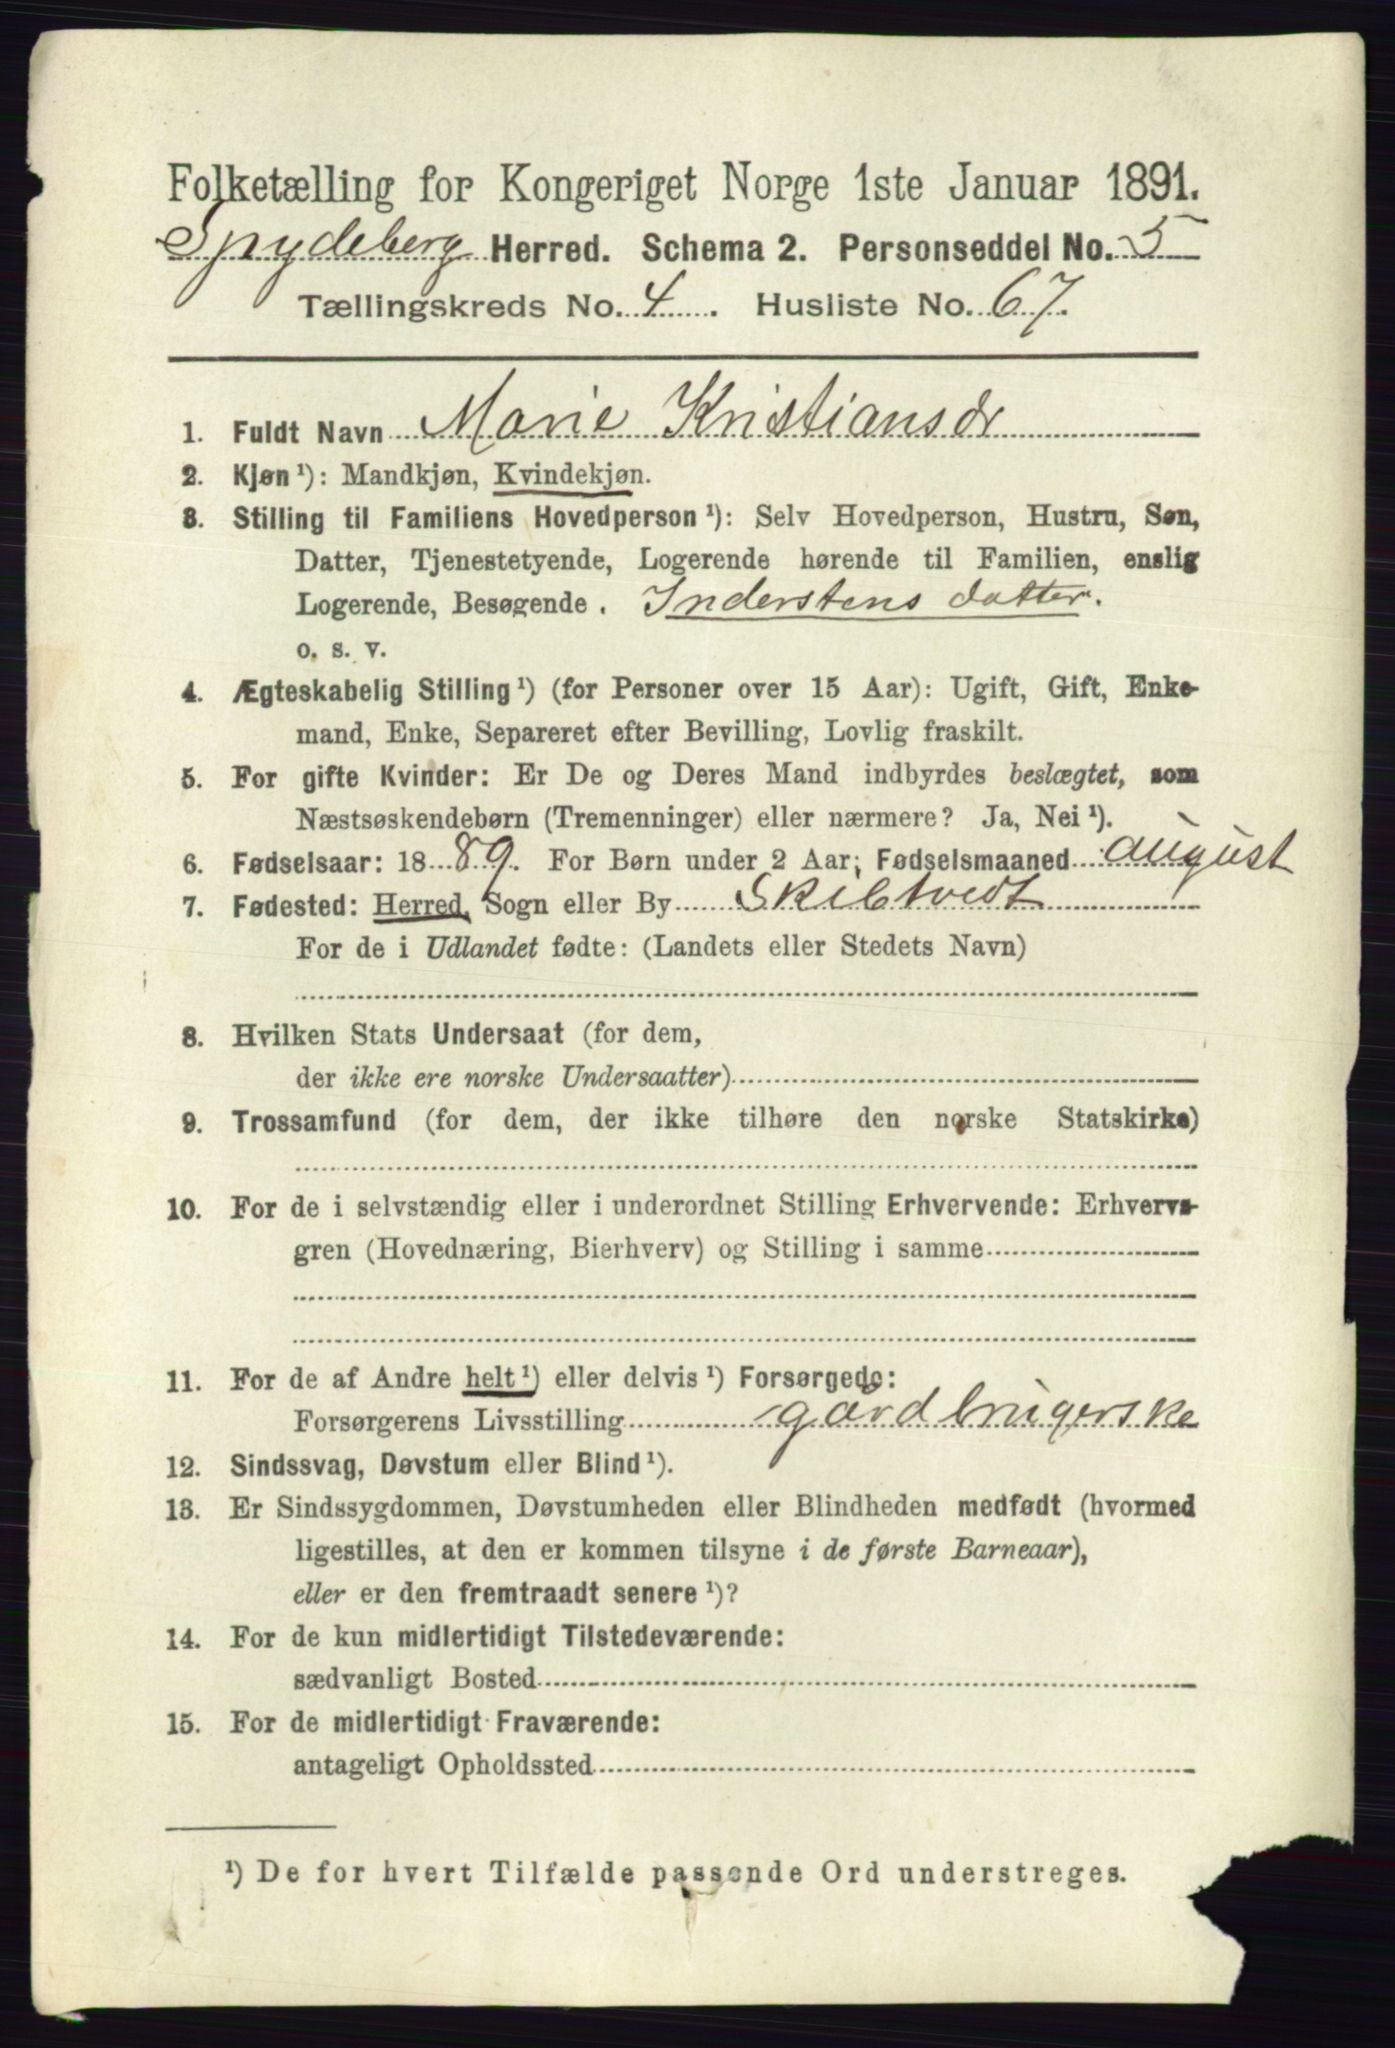 Folketælling for Kongeriget Norge 1ste Januar 1891.
Spydeberg Herred. Schema 2. Personseddel No. 5
Tællingskreds No. 4. Husliste No. 67.
1. Fuldt Navn Marie Kristiansdr
2. Kjøn ¹): Mandkjøn, Kvindekjøn.
3. Stilling til Familiens Hovedperson ¹): Selv Hovedperson, Hustru, Søn,
Datter, Tjenestetyende, Logerende hørende til Familien, enslig
Logerende, Besøgende . Inderstens datter.
o. s. v.
4. Ægteskabelig Stilling ¹) (for Personer over 15 Aar): Ugift, Gift, Enke-
mand, Enke, Separeret efter Bevilling, Lovlig fraskilt.
5. For gifte Kvinder: Er De og Deres Mand indbyrdes beslægtet, som
Næstsøskendebørn (Tremenninger) eller nærmere? Ja, Nei ¹).
6. Fødselsaar: 1889. For Børn under 2 Aar; Fødselsmaaned august
7. Fødested: Herred, Sogn eller By Skibtvedt
For de i Udlandet fødte: (Landets eller Stedets Navn)
8. Hvilken Stats Undersaat (for dem,
der ikke ere norske Undersaatter)
9. Trossamfund (for dem, der ikke tilhøre den norske Statskirke)
10. For de i selvstændig eller i underordnet Stilling Erhvervende: Erhvervs-
gren (Hovednæring, Bierhverv) og Stilling i samme
11. For de af Andre helt ¹) eller delvis ¹) Forsørgede:
Forsørgerens Livsstilling gårdbrugerske
12. Sindssvag, Døvstum eller Blind ¹).
13. Er Sindssygdommen, Døvstumheden eller Blindheden medfødt (hvormed
ligestilles, at den er kommen tilsyne i de første Barneaar),
eller er den fremtraadt senere ¹)?
14. For de kun midlertidigt Tilstedeværende:
sædvanligt Bosted
15. For de midlertidigt Fraværende:
antageligt Opholdssted
¹) De for hvert Tilfælde passende Ord understreges.